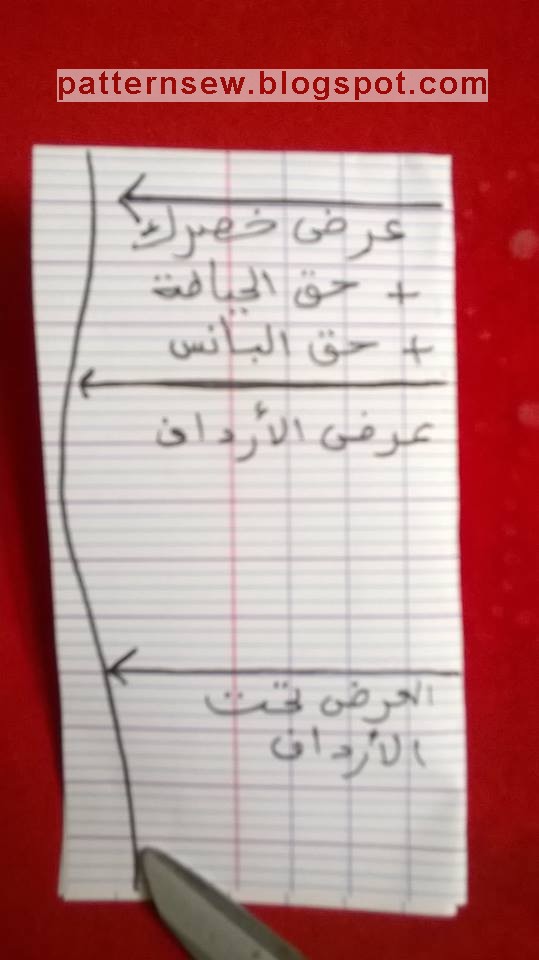 patternsew.blogspot.com
عرض خصرك
+ حق الخياطة
+ حق البانس
عرض الأرداف
العرض تحت
الأرداف